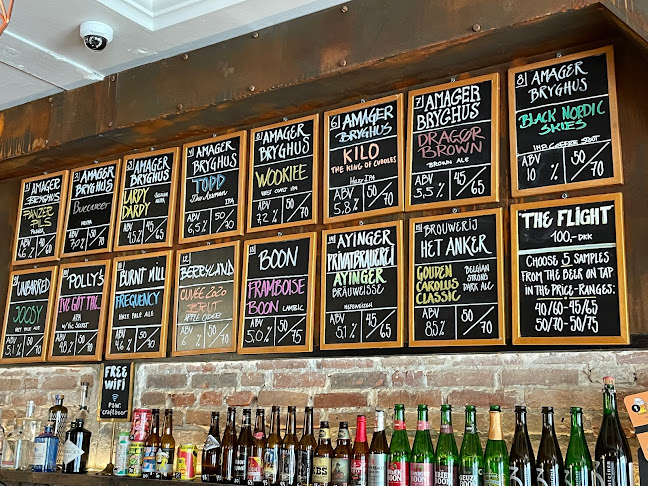 1) AMAGER
BRYGHUS
PANZER
PILS
ABV
4.6%
2) AMAGER
BRYGHUS
Buccaneer
ABV
50/70
3) AMAGER
BRYGHUS
LARDY
DARDY
ABV
4.5%
45/65
4) AMAGER
BRYGHUS
TODD
The Axman
IPA
ABV
6.5%
50/70
5) AMAGER
BRYGHUS
WOOKIEE
WEST COAST IPA
ABV
7.2%
50/70
6) AMAGER
BRYGHUS
KILO
THE KING OF CUDDLES
HAZY IPA
ABV
5.8%
50/70
7) AMAGER
BRYGHUS
DRAGØR
BROWN
BROWN ALE
ABV
5.5%
45/65
8) AMAGER
BRYGHUS
BLACK NORDIC
SKIES
IMP. COFFEE STOUT
ABV
10 %
50/70
UNBARRED
JOOSY
HAZY PALE ALE
ABV
5%
50/70
10 POLLY'S
I'VE GOT THE.
APA
W/ THE SECRET
ABV
4.8%
50/70
11 BURNT MILL
FREQUENCY
HAZY PALE ALE
ABV
50/70
12 BERRYLAND
CUVÉE 2020
BRUT
APPLE CIDER
ABV
6 %
50/70
13 BOON
FRAMBOISE
BOON LAMBIC
ABV
5.0%
50/75
14 AYINGER
PRIVATBRAUEREI
AYINGER
BRÄUWEISSE
HEFEWEIZEN
ABV
5.1%
45/65
15 BROUWERIJ
HET ANKER
GOUDEN
CAROLUS
CLASSIC
BELGIAN
STRONG
DARK ALE
ABV
8.5%
50/70
"THE FLIGHT"
100,- DKK
CHOOSE 5 SAMPLES
FROM THE BEER ON TAP
IN THE PRICE-RANGES:
40/60-45/65
50/70-50/75
FREE
WIFI
PSW:
craftbeer